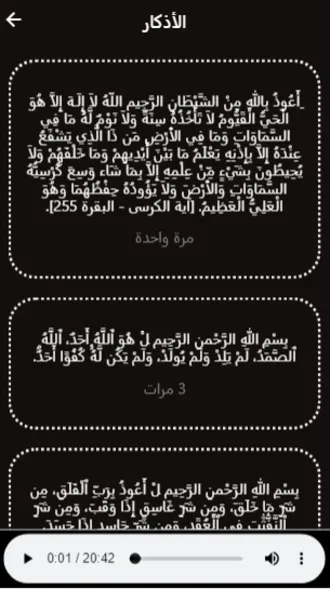 الأذكار
أَعُوذُ بِاللهِ مِنْ الشَّيْطَانِ الرَّجِيمِ اللّهُ لاَ إِلَـهَ إِلاَّ هُوَ
الْحَيُّ الْقَيُّومُ لاَ تَأْخُذُهُ سِنَةٌ وَلاَ نَوْمٌ لَّهُ مَا فِي
السَّمَاوَاتِ وَمَا فِي الأَرْضِ مَن ذَا الَّذِي يَشْفَعُ
عِنْدَهُ إِلاَّ بِإِذْنِهِ يَعْلَمُ مَا بَيْنَ أَيْدِيهِمْ وَمَا خَلْفَهُمْ وَلاَ
يُحِيطُونَ بِشَيْءٍ مِّنْ عِلْمِهِ إِلاَّ بِمَا شَاء وَسِعَ كُرْسِيُّهُ
السَّمَاوَاتِ وَالأَرْضَ وَلاَ يَؤُودُهُ حِفْظُهُمَا وَهُوَ
الْعَلِيُّ الْعَظِيمُ. [آية الكرسى - البقرة 255].
مرة واحدة
بِسْمِ اللهِ الرَّحْمنِ الرَّحِيمِ لْ هُوَ ٱللَّهُ أَحَدٌ، ٱللَّهُ
ٱلصَّمَدُ، لَمْ يَلِدْ وَلَمْ يُولَدْ، وَلَمْ يَكُن لَّهُ كُفُوًا أَحَدٌۢ.
3 مرات
بِسْمِ اللهِ الرَّحْمنِ الرَّحِيمِ لْ أَعُوذُ بِرَبِّ ٱلْفَلَقِ، مِن
شَرِّ مَا خَلَقَ، وَمِن شَرِّ غَاسِقٍ إِذَا وَقَبَ، وَمِن شَرِّ
ٱلنَّفَّٰثَٰتِ فِى ٱلْعُقَدِ، وَمِن شَرِّ حَاسِدٍ إِذَا حَسَدَ.
0:01 / 20:42